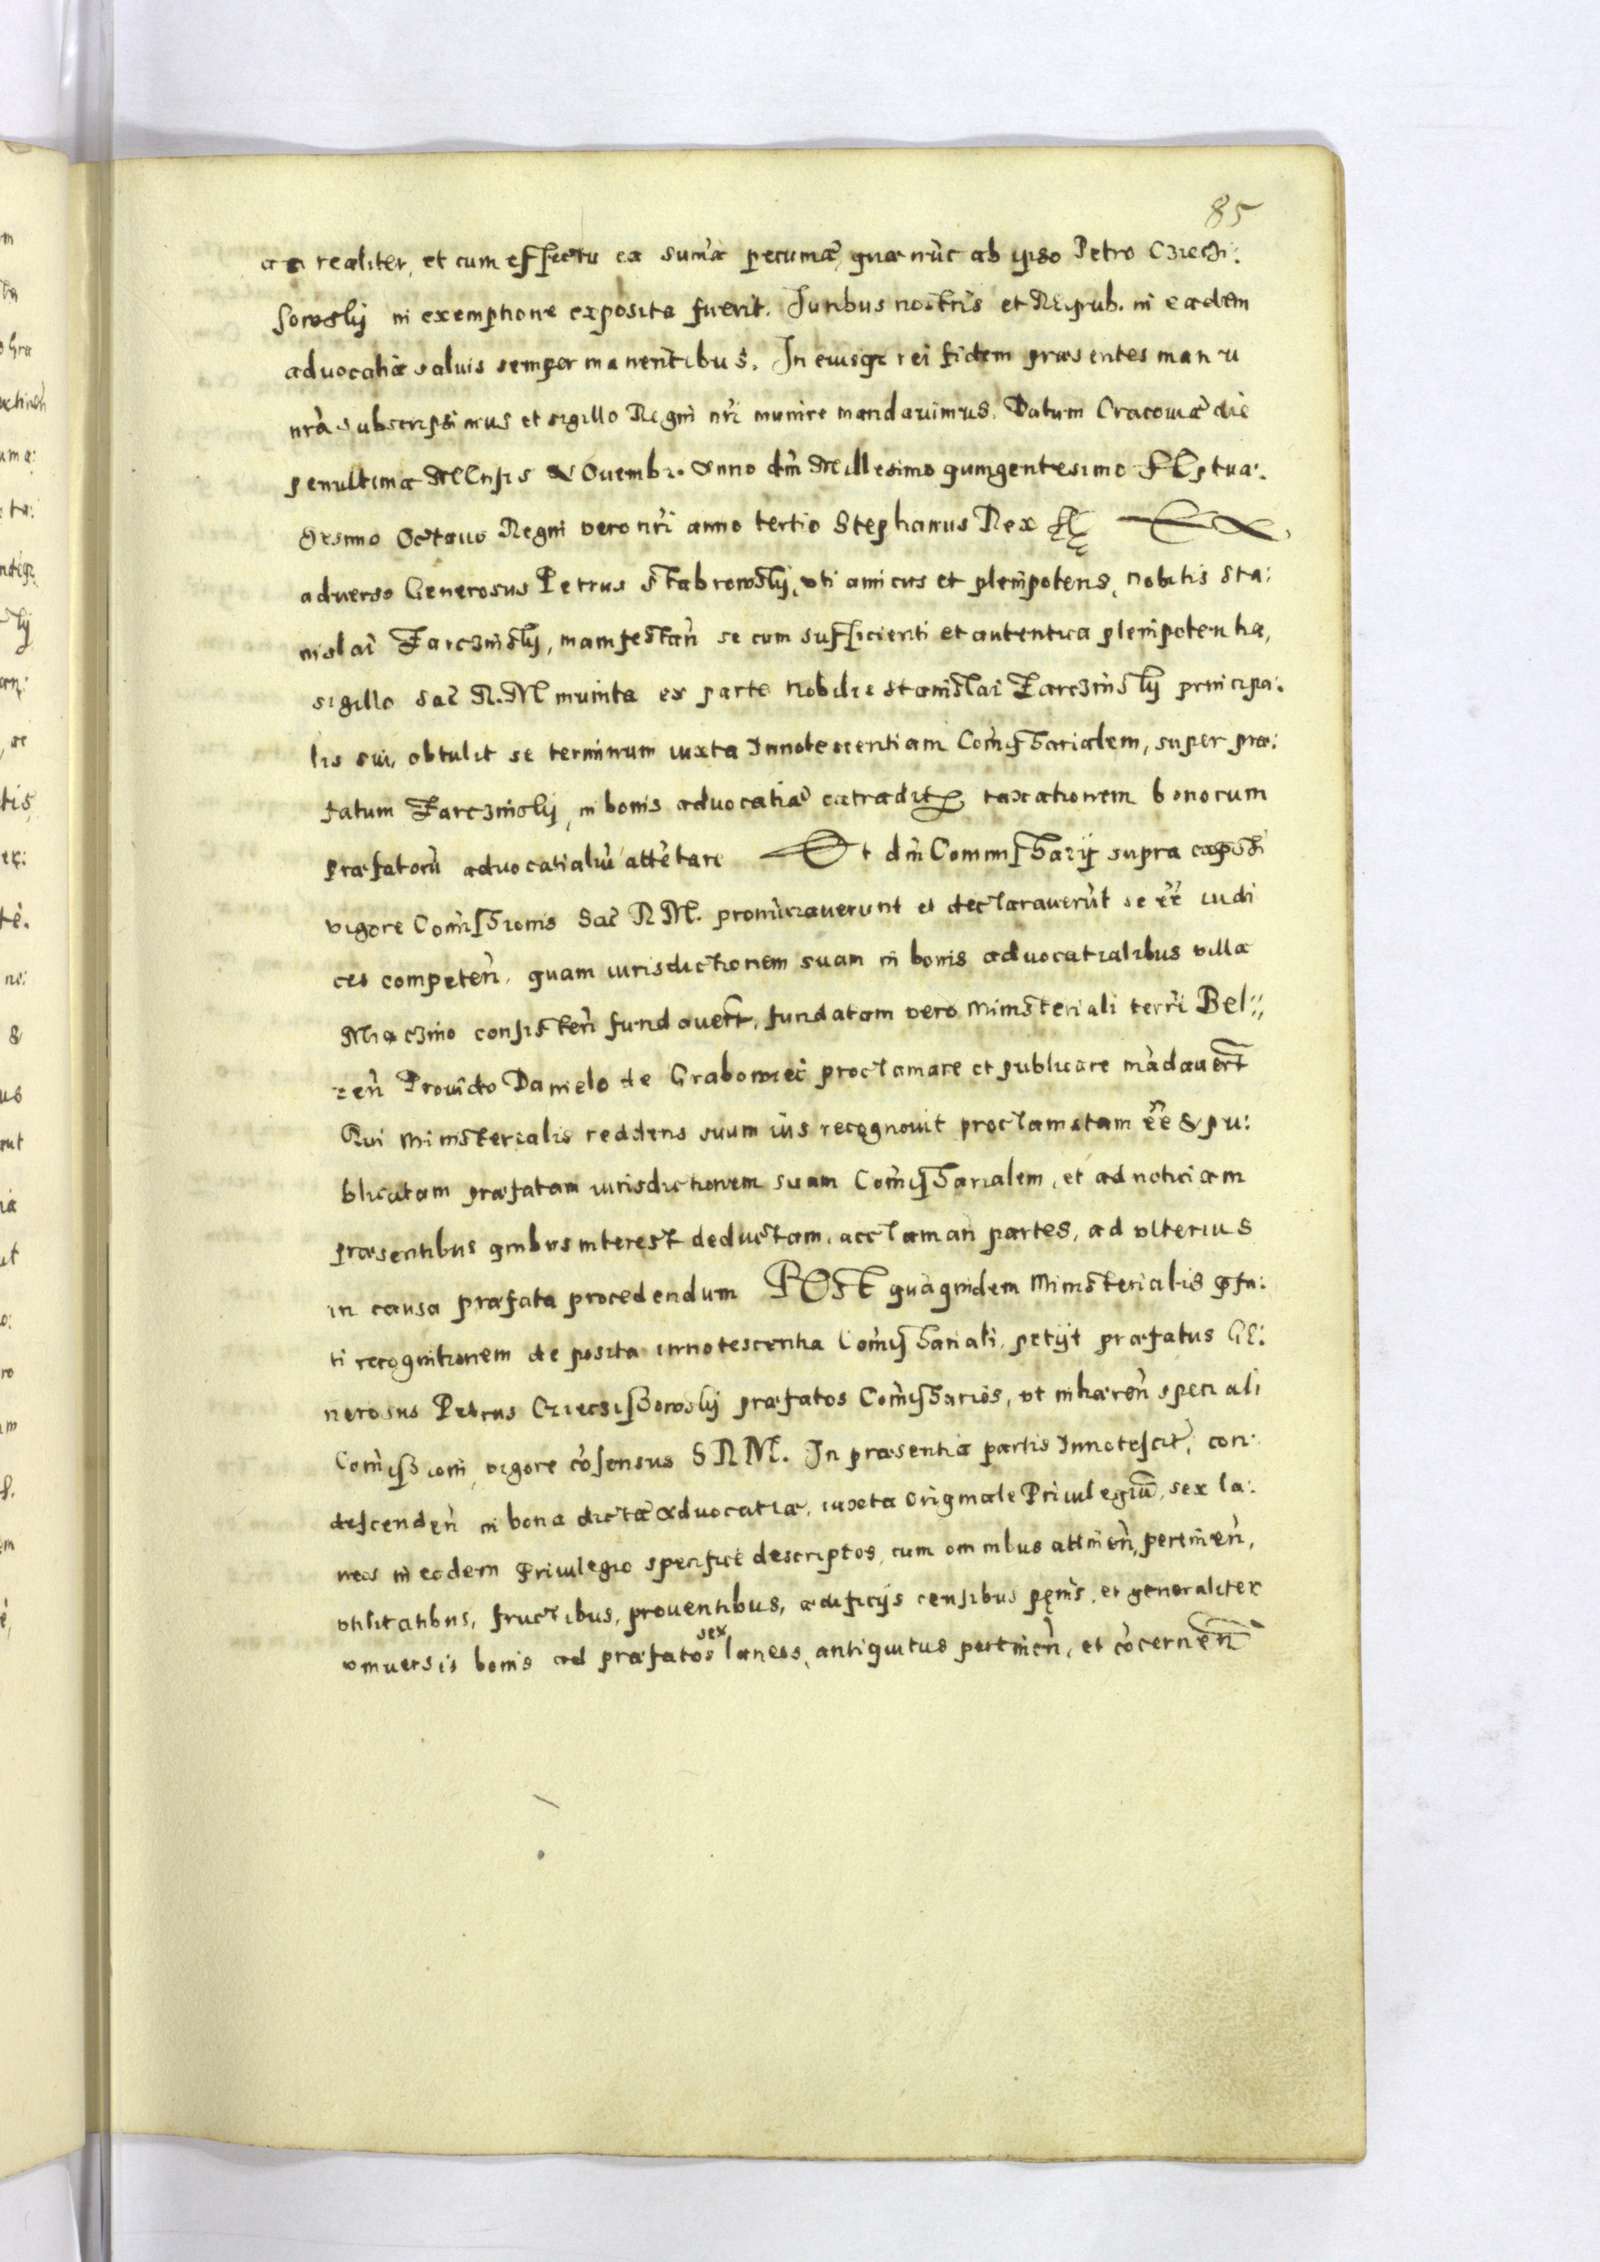 85
realiter, et cum effectu ea sum̃a pecuniæ, quæ nũc ab ipso Petro Czieci:
sowsky in exemptione exposita fuerit. Juribus nostris et Reipub. in eadem
advocatia salvis semper manentibus. In cuiusq̃ rei fidem præsentes manu
nr̃a subscripsimus et sigillo Regni nr̃i munire mandavimus. Datum Cracoviæ die
penultima MEnsis NOvembr. Anno dm̃ Millesimo quingentesimo SEptua:
gesimo Octavo Regni vero nr̃i anno tertio Stephanus Rex
adverso Generosus Petrus Stabrowsky, vti amicus et plenipotens, nobilis Sta:
nislai Jarczinsky, manifestañ se cum sufficienti et autentica plenipotentia,
sigillo Sac̃ R. M munita ex parte Nobilis Stanislai Jarczinsky principa:
lis sui, obtulit se terminum iuxta Innotescentiam Com̃issarialem, super præ:
fatum Jarczinsky, in bonis advocatiæ taxationem bonorum
præfatorũ advocatialiũ attẽtare Et dm̃ Commissarij supra
vigore Com̃issionis Sac̃ R M. pronũciaverunt et declaraverũt se ẽẽ iudi
ces competeñ, quam iurisdictionem suam in bonis advocatialibus villæ
Miaczino consisteñ fundavert̃, fundatam vero Ministeriali terr̃i Bel::
zeñ Provido Danielo de Grabowiec proclamare et publicare mãdavert̃
Qui Ministerialis reddens suum ius recognovit proclamatam ẽẽ & pu:
blicatam præfatam iurisdictionem suam Com̃issarialem, et ad noticiam
præsentibus quibus interest deductam, acclamañ partes, ad vlterius
in causa præfata procedendum POst quãquidem Ministerialis p̃fa:
ti recognitionem de posita innotescentia Com̃issariali, petijt præfatus GE:
nerosus Petrus Cziecsissowsky præfatos Com̃issarios, vt inhæreñ speciali
Com̃issioni, vigore cõsensus S R M. In præsentia partis Innotescit̃, con
descendeñ in bona dictæ advocatiæ, iuxta originale Privilegiũ, sex la:
neos in eodem Privilegio specifice descriptos, cum omnibus attineñ, pertineñ,
vtilitatibus, fructibus, proventibus, ædificijs censibus et generaliter
vniversis bonis ad præfatos sex laneos, antiquitus pertineñ, et cõcerneñ